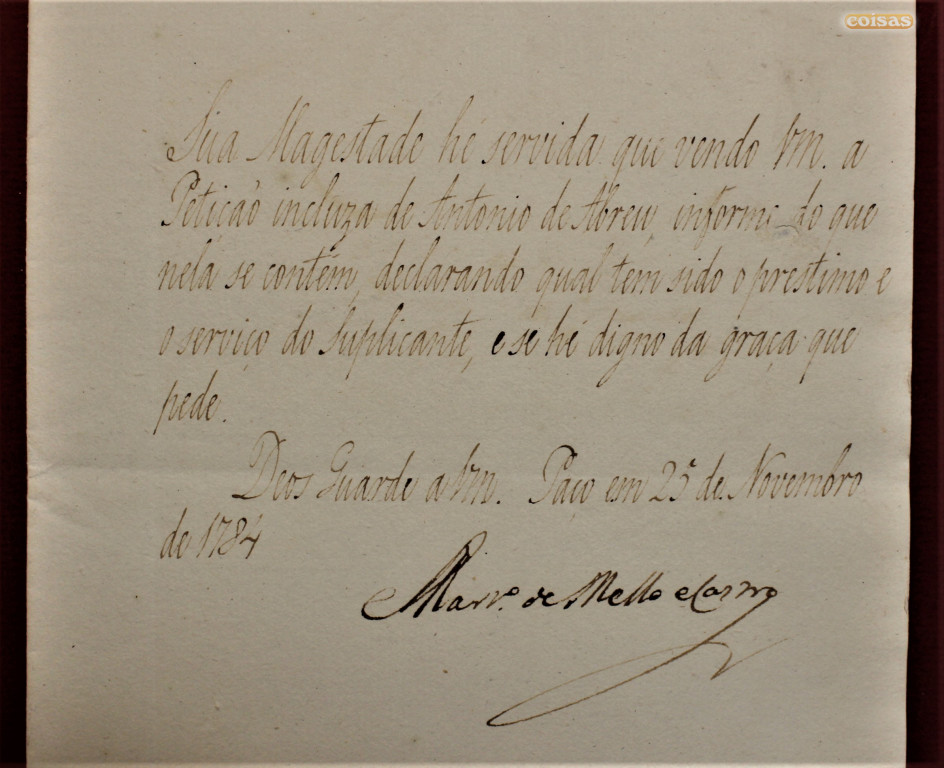 coisas
Sua Magestade hé servida que vendo Vm. a
Petição incluza de Antonio de Abreu, informe do que
nela se contém, declarando qual tem sido o prestimo e
o serviço do Suplicante, e se hé digno da graça que
pede.
Deos Guarde a Vm. Paço em 25 de Novembro
de 1784
Mart.º de Mello e Castro